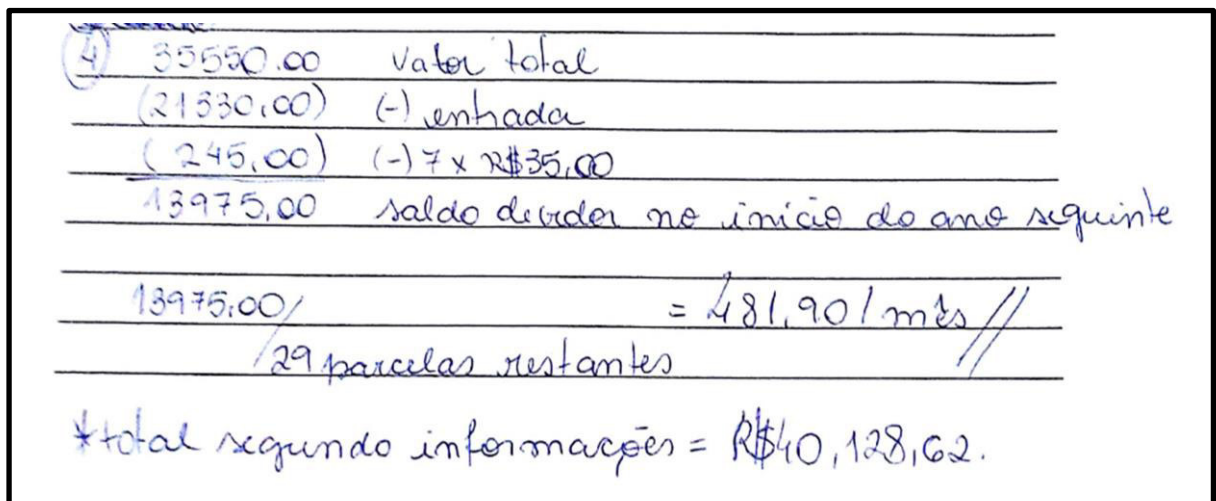 4 35550.00 Valor total
(21330,00) (-) entrada
(245,00) (-) 7 x R$35,00
13975,00 saldo devedor no início do ano seguinte
13975.00/ = 481,90/mês//
29 parcelas restantes
*total segundo informações = R$40,128,62.